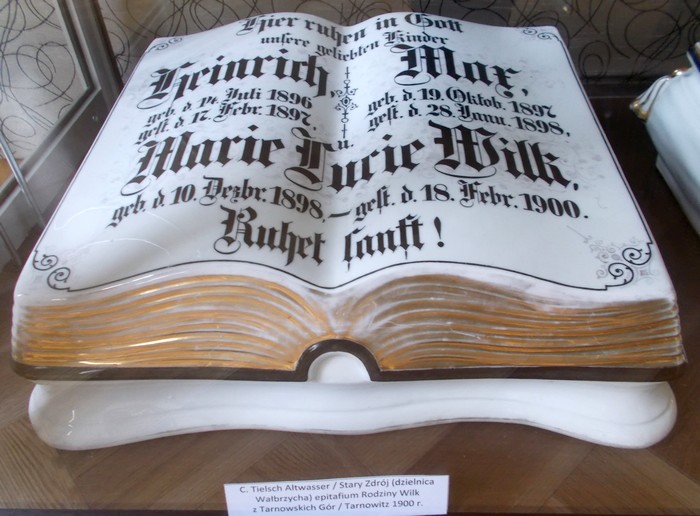 Hier ruhen in Gott
unsere geliebten Kinder
Heinrich,
geb. d. 14. Juli 1896
gest. d. 17. Febr. 1897.
Max,
geb. d. 19. Oktob. 1897
gest. d. 28. Janu. 1898,
u.
Marie Lucie Wilk,
geb. d. 10. Dezbr. 1898.—gest. d. 18. Febr. 1900.
Ruhet sanft!
C. Tielsch Altwasser / Stary Zdrój (dzielnica
Wałbrzycha) epitafium Rodziny Wilk
z Tarnowskich Gór / Tarnowitz 1900 r.